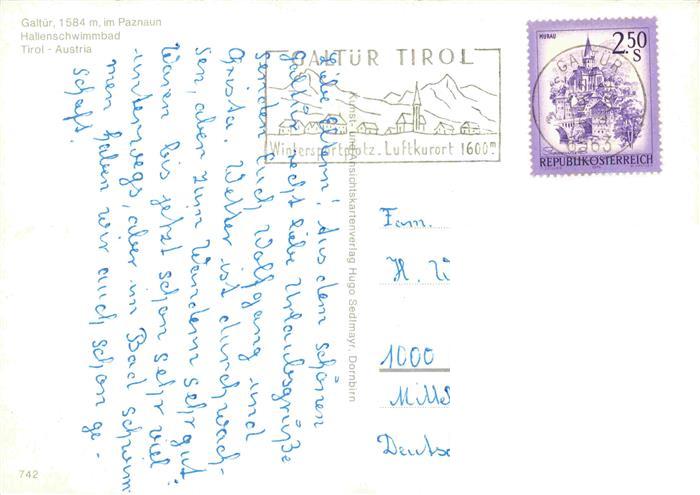 Galtür, 1584 m, im Paznaun
Hallenschwimmbad
Tirol - Austria
GALTÜR TIROL
Wintersportplatz. Luftkurort 1600m
MURAU
2.50
S
GALTÜR
6563
REPUBLIK ÖSTERREICH
Liebe Eltern! Aus dem schönen
Galtür recht liebe Urlaubsgrüße
senden Euch Wolfgang und
Christa. Wetter ist durchwach-
sen, aber zum Wandern sehr gut.
Waren bis jetzt schon sehr viel
unterwegs, aber im Bad schwim-
men haben wir auch schon ge-
schafft.
Kunst- und Ansichtskartenverlag Hugo Sedlmayr, Dornbirn
Fam.
H.
1000
742